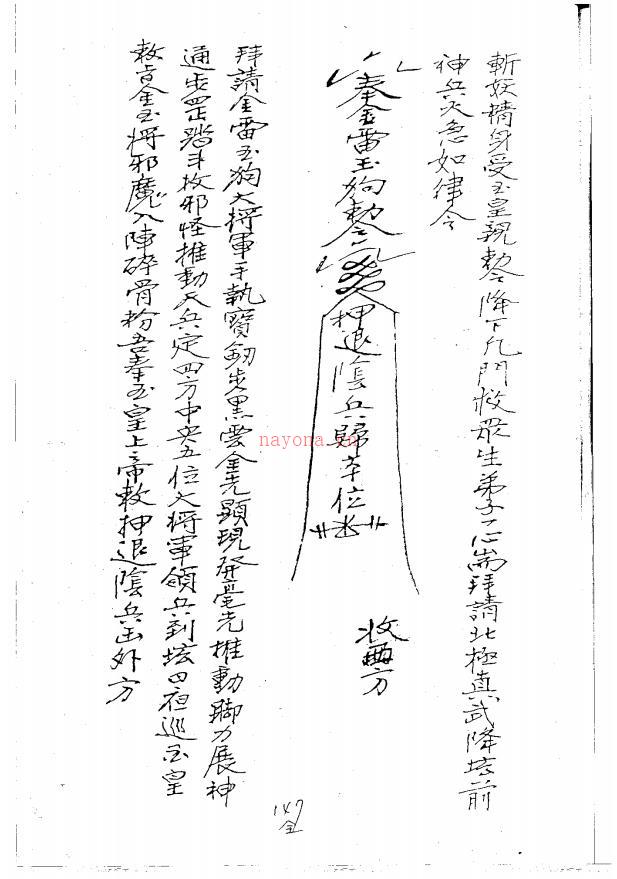 斬妖精身受玉皇親勅令降下凡門救眾生弟子一心耑拜請北極真武降坛前
神兵火急如律令
奉金雷玉狗勅令
押退陰兵歸本位
收西方
拜請金雷玉狗大將軍手執寶劍步黑雲金光顯現發毫光推動腳力展神
通步罡踏斗收邪怪推動天兵定四方中央五位大將軍領兵到坛日夜巡玉皇
敕旨金玉將邪魔入陣碎骨粉吾奉玉皇上帝敕押退陰兵出外方
nayona.vn
147